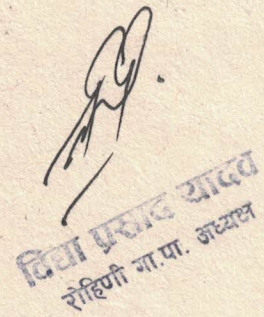 विद्या प्रसाद यादव
रोहिणी गा.पा. अध्यक्ष